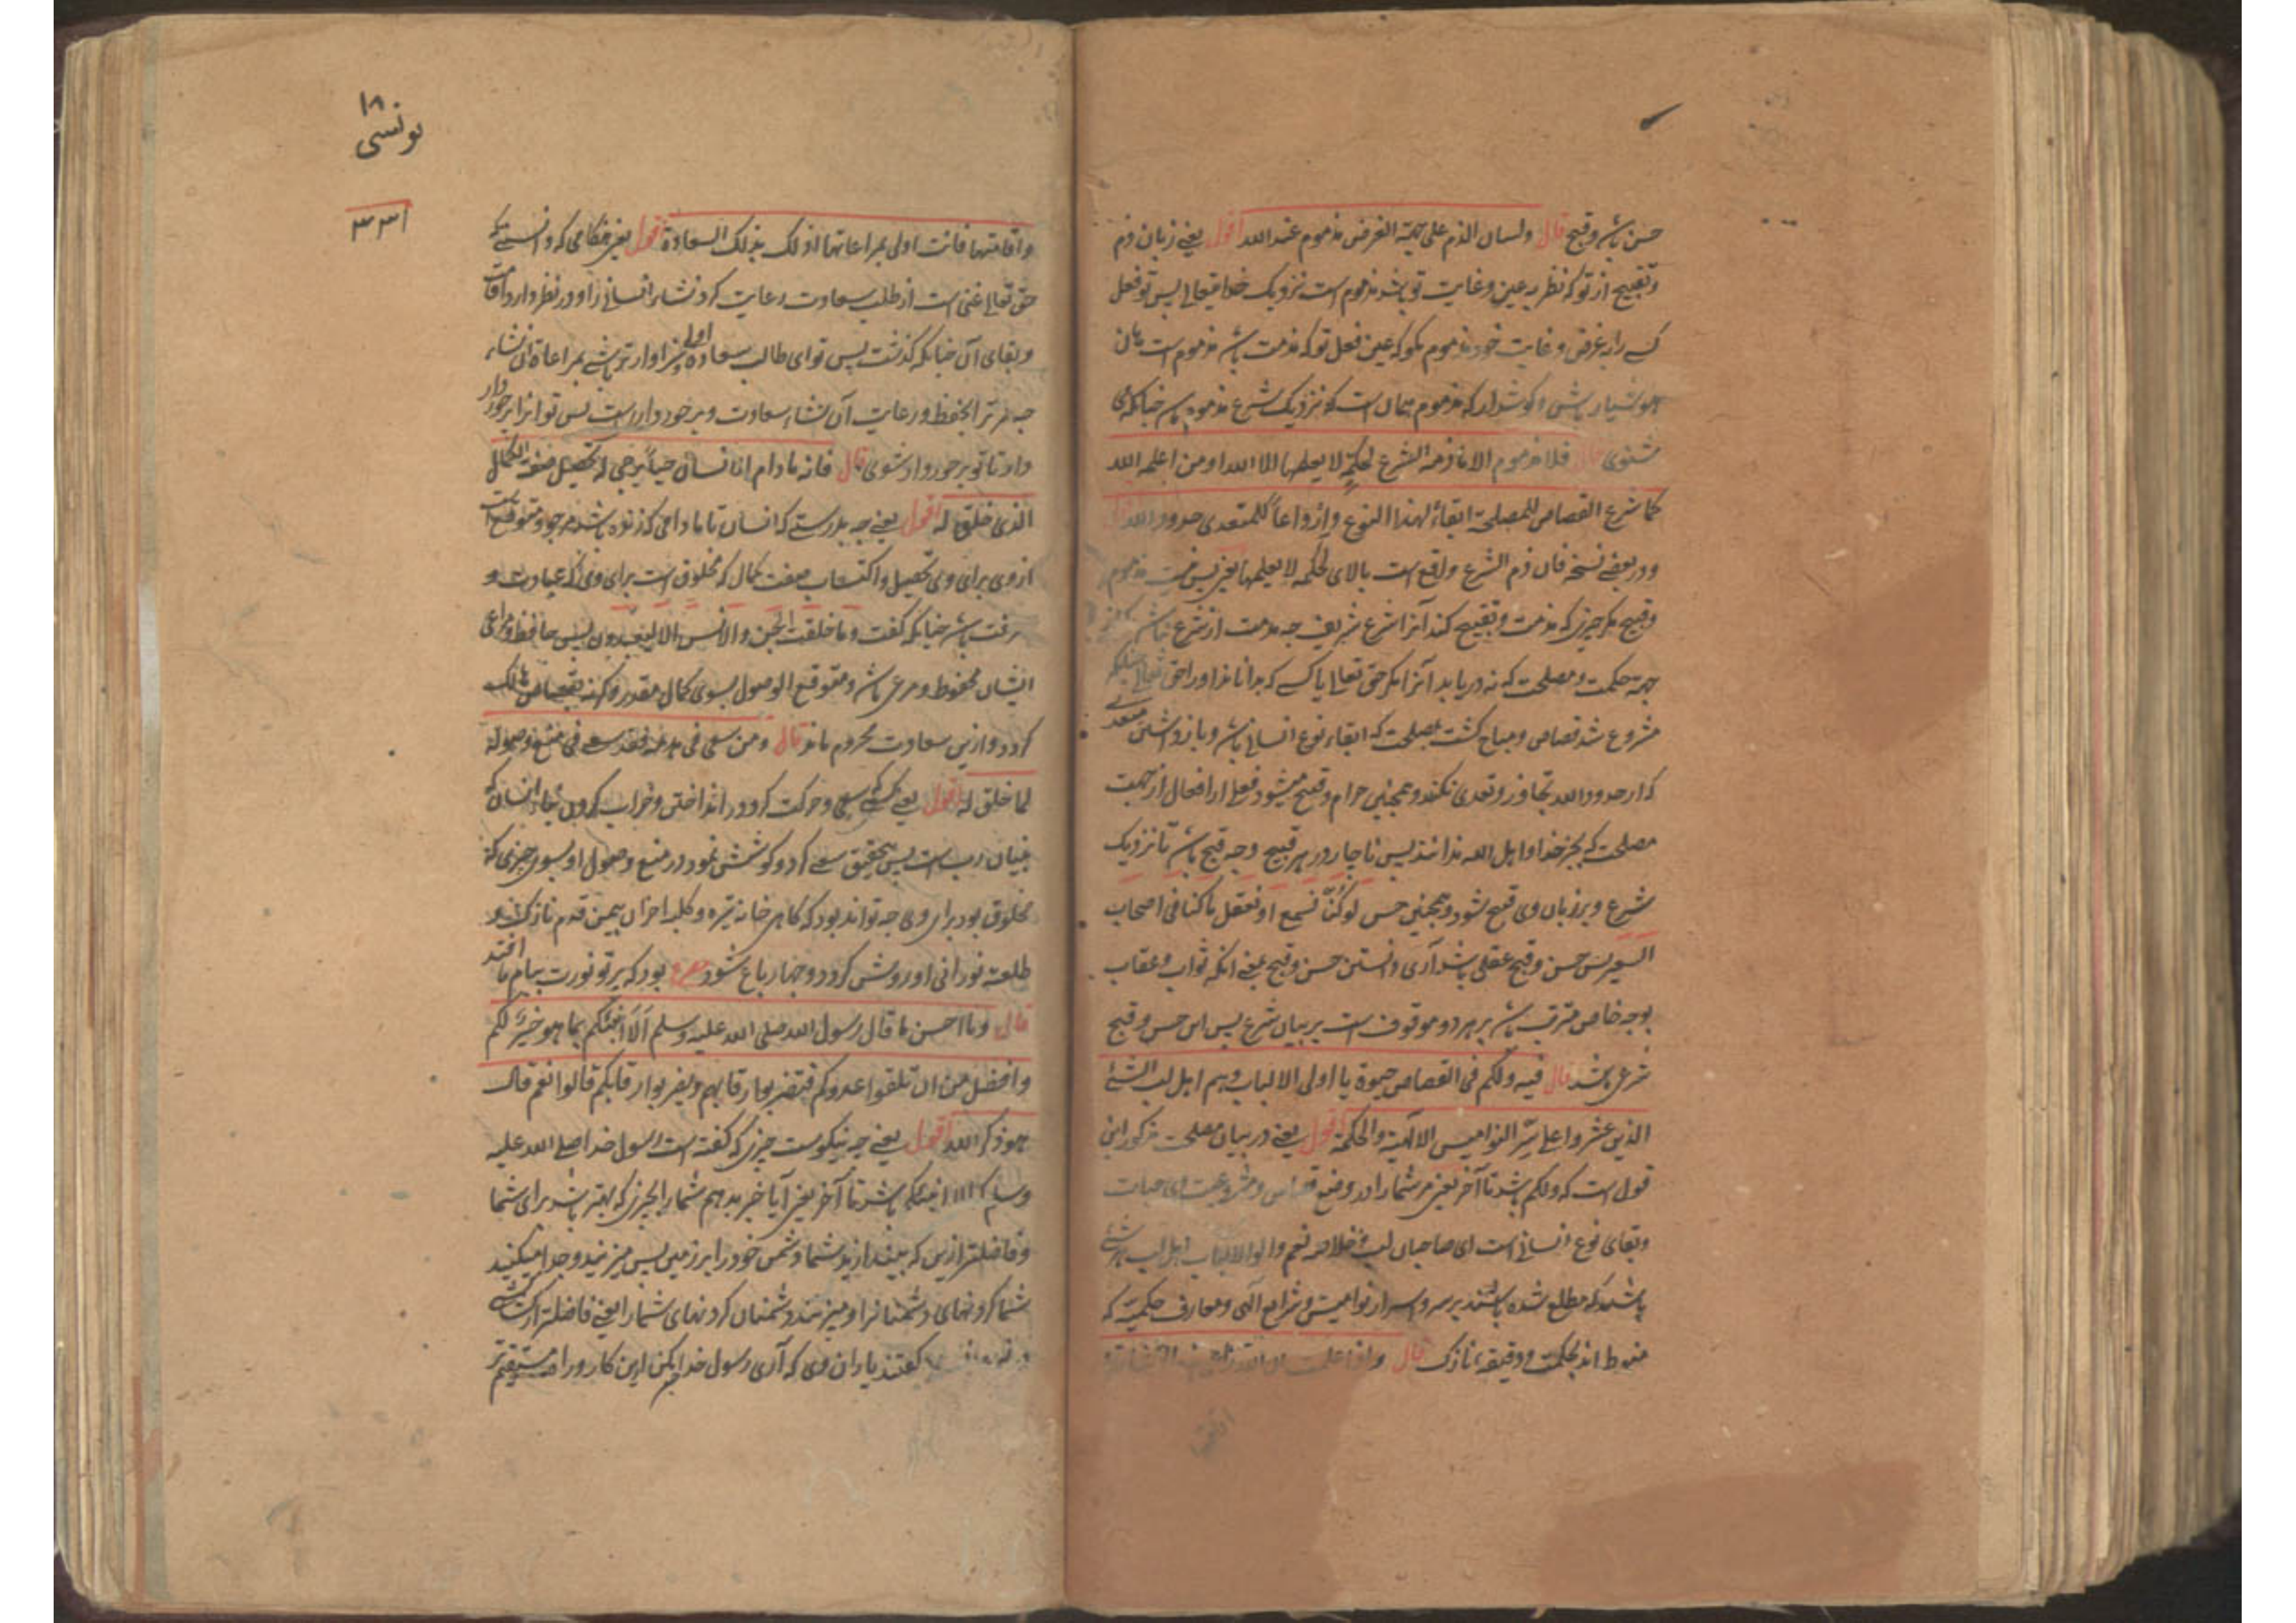 حسن باشد و قبیح قال ولسان الذم على جهة الغرض مذموم عند الله اقول یعنی زبان ذم
و تقبیح از تو که نظر بر عین و غایت تو باشد مذموم است نزدیک خدایتعالی پس تو فعل
کسے را به غرض و غایت خود مذموم مگو که عین فعل تو که مذمت باشد مذموم است
هوشیار باشی و گوش دار که مذموم همان است که نزدیک شرع مذموم باشد چنانکه می
شنوی قال فلا مذموم الا ما ذمه الشرع لحكمة لا يعلمها الا الله او من اعلمه الله
كما شرع القصاص للمصلحة ابقاءً لهذا النوع وازداعاً للمتعدي حدود الله قال
و در بعضے نسخه فان ذم الشرع واقع است بالای لحكمه لا يعلمها یعنی پس نیست مذموم
و قبیح مگر چیزی که مذمت و تقبیح کند آنرا شرع شریف چه مذمت از شرع نباشد
جهة حکمت و مصلحت که نه دریابد آنرا مگر حق تعالی یا کسے که بداناند او را حق تعالی چنانکه
مشروع شد قصاص و مباح گشت بمصلحت که ابقاء نوع انسانی باشد و باز داشتن متعدی
که از حدود الله تجاوز و تعدی نکند و همچنین حرام و قبیح میشود فعلی از افعال از جهت
مصلحت که بجز خدا و اهل الله ندانند پس ناچار در هر قبیح وجه قبح باشد تا نزدیک
شرع و بر زبان وی قبیح شود و همچنین حسن لو كنّا نسمع او نعقل ما كنا في اصحاب
السعير پس حسن و قبح عقلی باشد آری دانستن حسن و قبح بمعنے انکه ثواب و عقاب
بوجه خاص مترتب باشد بر هر دو موقوف است بر بیان شرع پس این حسن و قبح
شرعی باشد قال فيه ولكم في القصاص حيوة يا اولى الالباب وهم اهل لب الشئ
الذين عثروا على سر النواميس الالهية والحكمة اقول یعنی در بیان مصلحت مذکور این
قول است که ولكم باشد تا آخر یعنی مر شما را در وضع قصاص و مشروعیت ای حیات
و بقای نوع انسانی است ای صاحبان لب و خلاصه فهم و اولو الالباب اهل لب هر شئے
باشند که مطلع شده باشند بر سر و اسرار نوامیس و شرایع الهی و معارف حکمیت که
منوط اند بحکمت و دقیقه نازک قال واذا علمت ان الله
اقامتها
١٨
یونسی
٣٣١
واقامتها فانت اولى بمراعاتها اذ لك بذلك السعادة اقول یعنی هنگامی که دانستے که
حق تعالی غنی است از طلب سعادت رعایت کرد نشاء انسانی را و در نظر دارد اقامت
و بقای آن چنانکه گذشت پس تو ای طالب سعادة اولی و سزاوارتر باشے بمراعاة این نشاء
چه مر ترا بحفظ و رعایت آن نشاء سعادت و برخورداریست پس تو او را برخوردار
دار تا تو برخوردار شوی قال فانه ما دام الانسان حياً يرجى له تحصيل صفة الكمال
الذي خلق له اقول یعنے چه بدرستے که انسان تا ما دامی که زنده باشد مرجو و متوقع است
از وی برای وی تحصیل و اکتساب صفت کمال که مخلوق است برای وی که عبادت و
معرفت باشد چنانکه گفت وما خلقت الجن والانس الا ليعبدون پس حافظ و مراعی
ایشان محفوظ و مرعی باشد و متوقع الوصول بسوی کمال مقدر وگرنه بقصاص هالک
گردد و ازین سعادت محروم ماند قال ومن سعى في هدمه فقد سعى في منع وصوله
لما خلق له اقول یعنے کسے سعی و حرکت کرد در انداختن و خراب کردن بنیاد انسان که
بنیان رب است پس بتحقیق سعے کرد و کوشش نمود در منع وصول او بسوی چیزی که
مخلوق بود برای وی چه تواند بود که گاهی خانه تیره و کلبه احزان بیمن قدم نازک او
طلعت نورانی او روشن گردد و چهار باغ شود مصرع بود که پرتو نورت ببام ما افتد
قال وما احسن ما قال رسول الله صلى الله عليه وسلم ألا أنبئكم بما هو خير لكم
وافضل من ان تلقوا عدوكم فتضربوا رقابهم ويضربوا رقابكم قالوا نعم قال
هو ذكر الله اقول یعنے چه نیکوست چیزی که گفته است رسول خدا صلے الله علیه
وسلم الا انبئكم باشد تا آخر یعنی آیا خبر بدهم شما را بچیزی که بهتر باشد برای شما
و فاضلتر ازین که بیندازید شما دشمن خود را بر زمین پس میزنید و جدا میکنید
شما گردنهای دشمنانرا و میزنند دشمنان گردنهای شما را یعنے فاضلتر از کشتے
گفتند یاران وی که آری رسول خدا بکن این کار و راه مستقیم تر